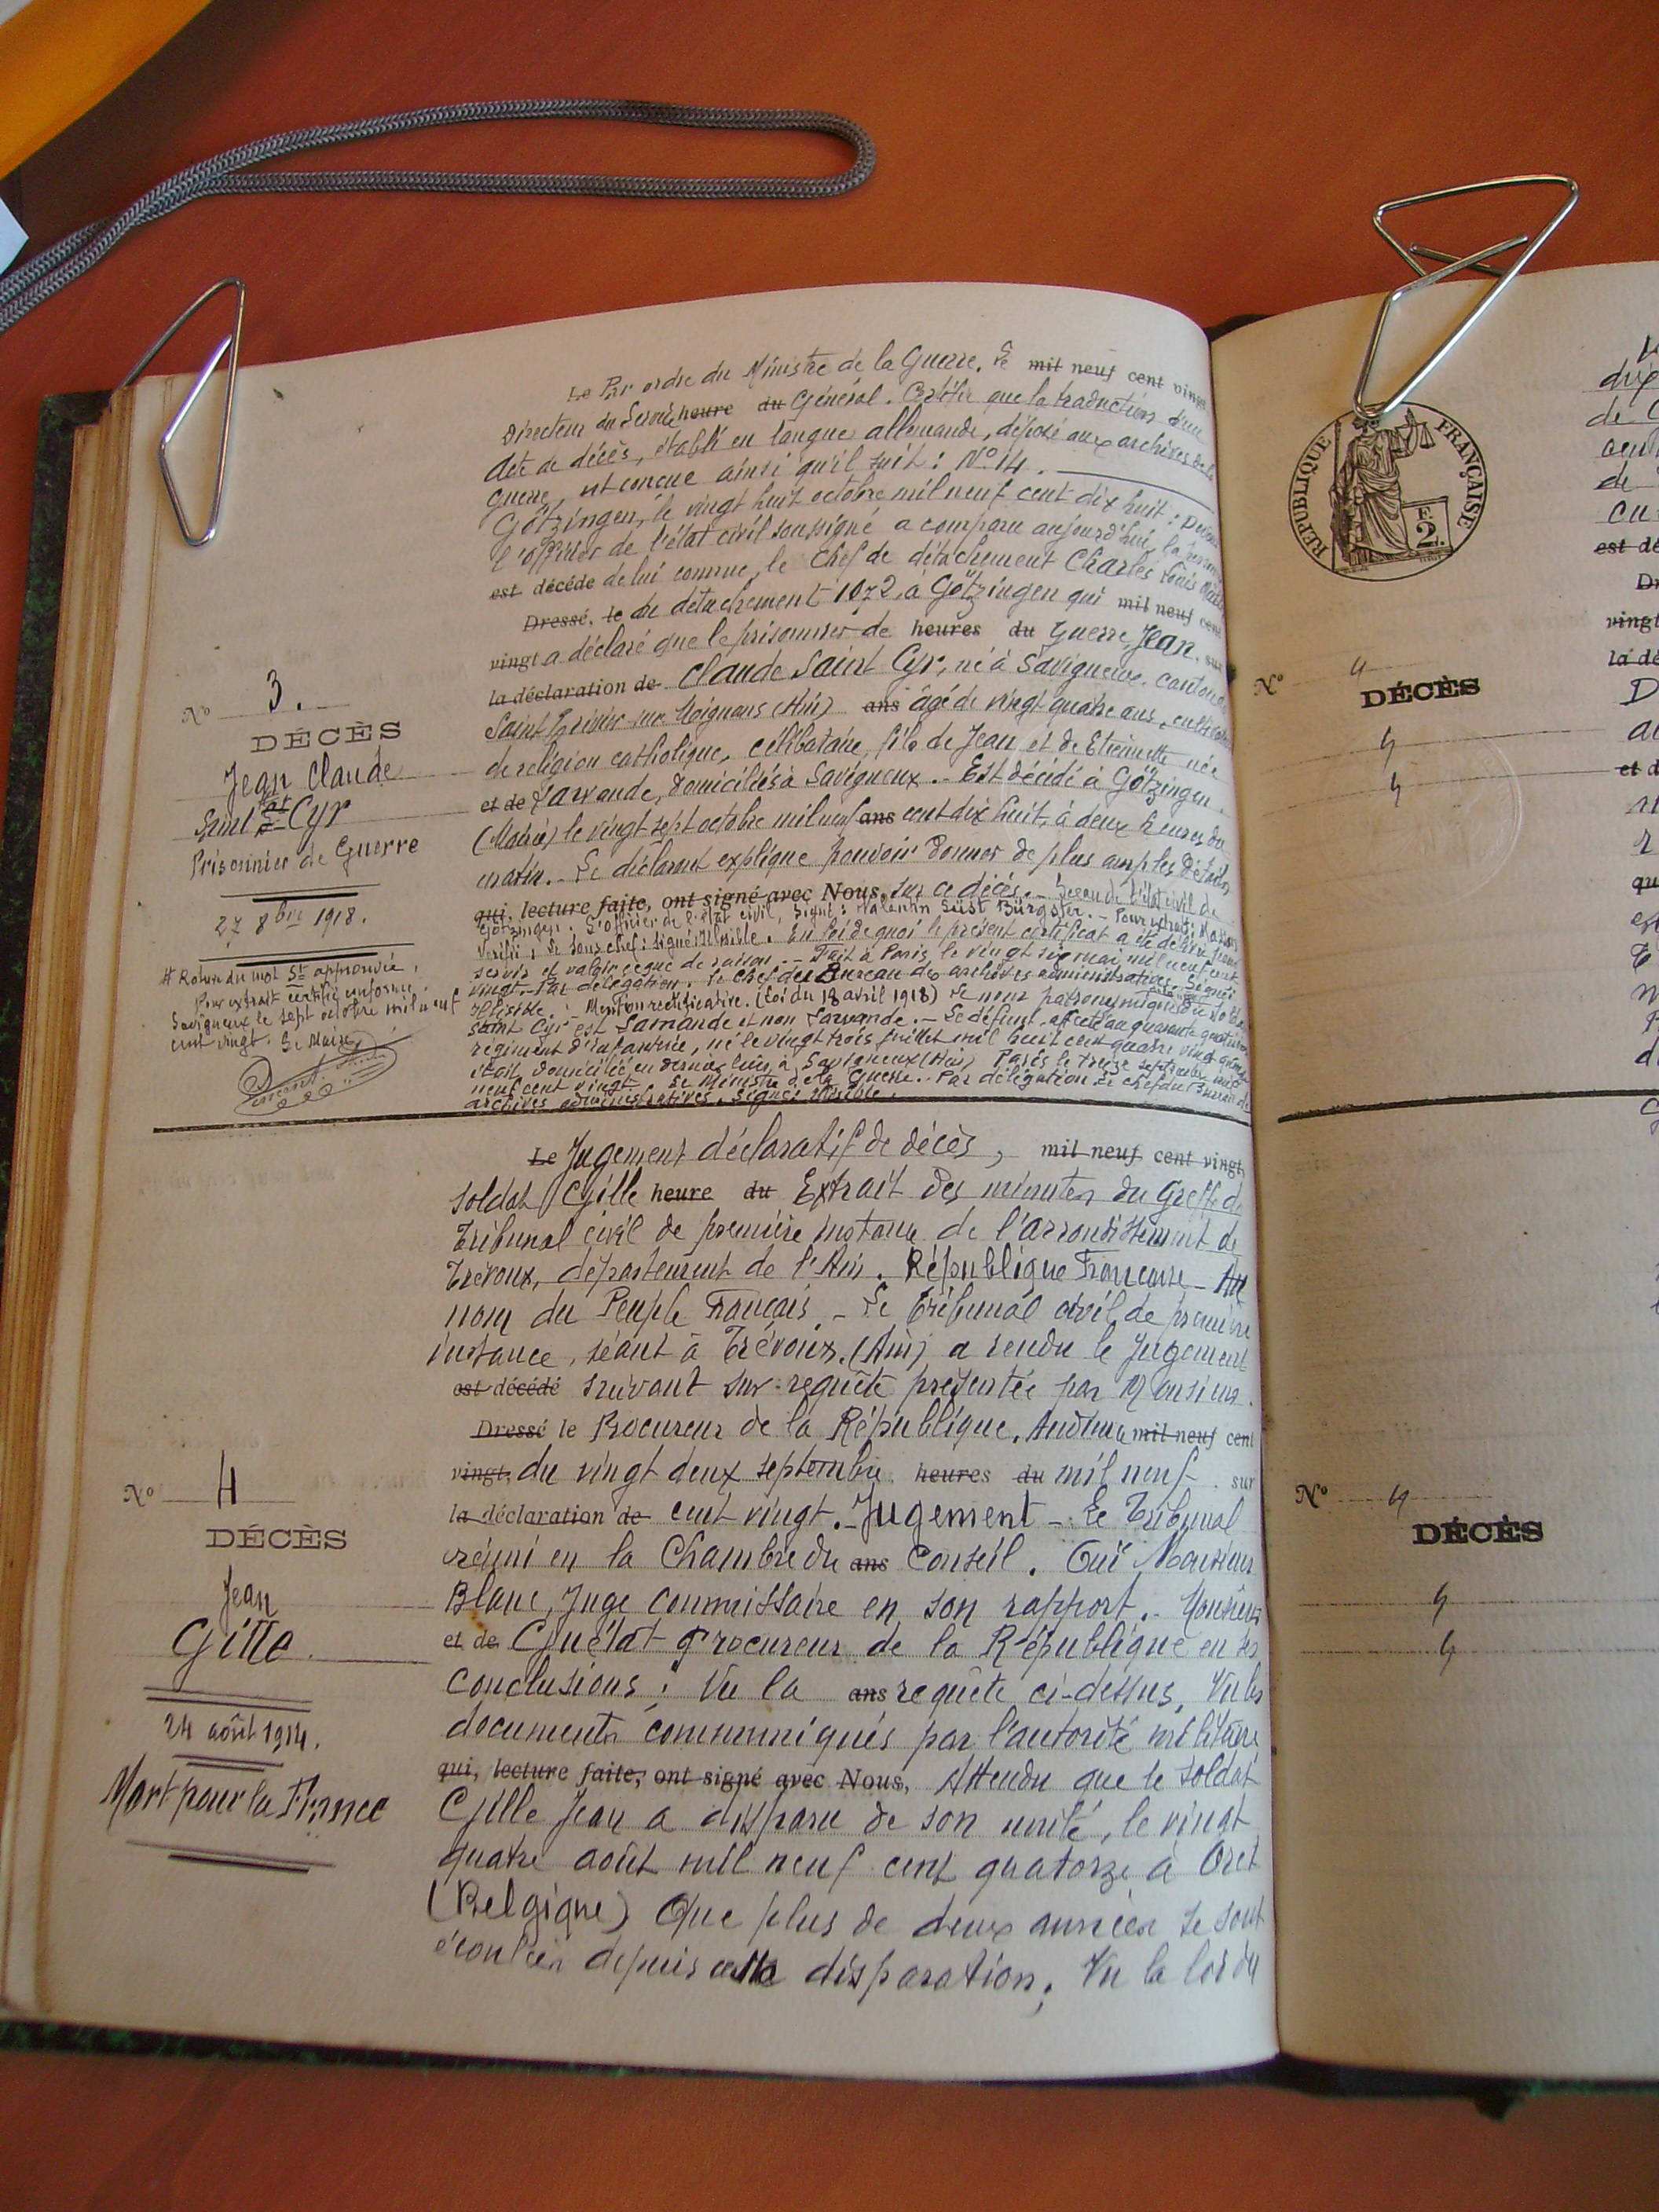 Le Par ordre du Ministre de la Guerre. Le mil neuf cent vingt
Directeur du Service heure du Général. Certifie que la traduction d'un
Acte de décès, établi en langue allemande, déposé aux archives de la
guerre, est conçue ainsi qu'il suit : N° 14.
Götzingen, le vingt huit octobre mil neuf cent dix huit :
l'officier de l'état civil soussigné a comparu aujourd'hui, la
est décédé de lui connue, le Chef de détachement Charles Louis
Dressé, le du détachement 1072, à Götzingen qui mil neuf cent
vingt a déclaré que le prisonnier de heures du Guerre, Jean sur
la déclaration de Claude Saint Cyr, né à Savigneux, canton de
Saint Trivier sur Moignans (Ain) ans âgé de vingt quatre ans, cultivateur
de religion catholique, célibataire, fils de Jean et de Etiennette née
et de Larvande, domiciliés à Savigneux. - Est décédé à Götzingen
le vingt sept octobre mil neuf ans cent dix huit, à deux heures du
matin. - Le déclarant explique pouvoir donner de plus amples détails
qui, lecture faite, ont signé avec Nous, sur ce décès. - Sceau de l'état civil de
Götzingen. L'officier de l'état civil, signé : Valentin Süst Bürgster. - Pour extrait :
Vérifié : Le Sous chef : signé : illisible. En foi de quoi le présent certificat a été délivré pour
servir et valoir ce que de raison. - Fait à Paris, le vingt six mai mil neuf cent
vingt. - Par délégation. Le Chef du Bureau des archives administratives. Signé :
illisible. - Mention rectificative. (Loi du 18 avril 1918) Le nom patronymique du
Saint Cyr est Lamande et non Larvande. - Le défunt, affecté au quarante quatrième
régiment d'infanterie, né le vingt trois juillet mil huit cent quatre vingt
était domicilié en dernier lieu, à Savigneux (Ain) Paris le treize septembre mil
neuf cent vingt. Le Ministre de la Guerre. - Par délégation Le Chef du Bureau des
archives administratives. Signé : illisible.
N° 3.
DÉCÈS
Jean Claude
Saint St Cyr
Prisonnier de Guerre
27 8bre 1918.
# Rature du mot St approuvée,
Pour extrait certifié conforme
Savigneux le sept octobre mil neuf
cent vingt. Le Maire
Le Jugement déclaratif de décès, mil neuf cent vingt,
soldat Gille heure du Extrait des minutes du Greffe du
Tribunal civil de première instance de l'arrondissement de
Trévoux, département de l'Ain. République Française - Au
nom du Peuple Français. - Le Tribunal civil de première
instance, séant à Trévoux. (Ain) a rendu le Jugement
est décédé suivant sur requête présentée par Monsieur
Dressé le Procureur de la République. Audience mil neuf cent
vingt, du vingt deux septembre heures du mil neuf sur
la déclaration de cent vingt. - Jugement - Le Tribunal
réuni en la Chambre du ans Conseil. Ouï Monsieur
Blanc, Juge Commissaire en son rapport. - Monsieur
et de Guélat Procureur de la République en ses
Conclusions ; Vu la ans requête ci-dessus, Vu les
documents communiqués par l'autorité militaire
qui, lecture faite, ont signé avec Nous, Attendu que le soldat
Gille Jean a disparu de son unité, le vingt
quatre août mil neuf cent quatorze à Oret
(Belgique) Que plus de deux années se sont
écoulées depuis cette disparation ; Vu la loi du
N° 4
DÉCÈS
Jean
Gille
24 août 1914.
Mort pour la France
RÉPUBLIQUE FRANÇAISE
2
N°
DÉCÈS
N°
DÉCÈS